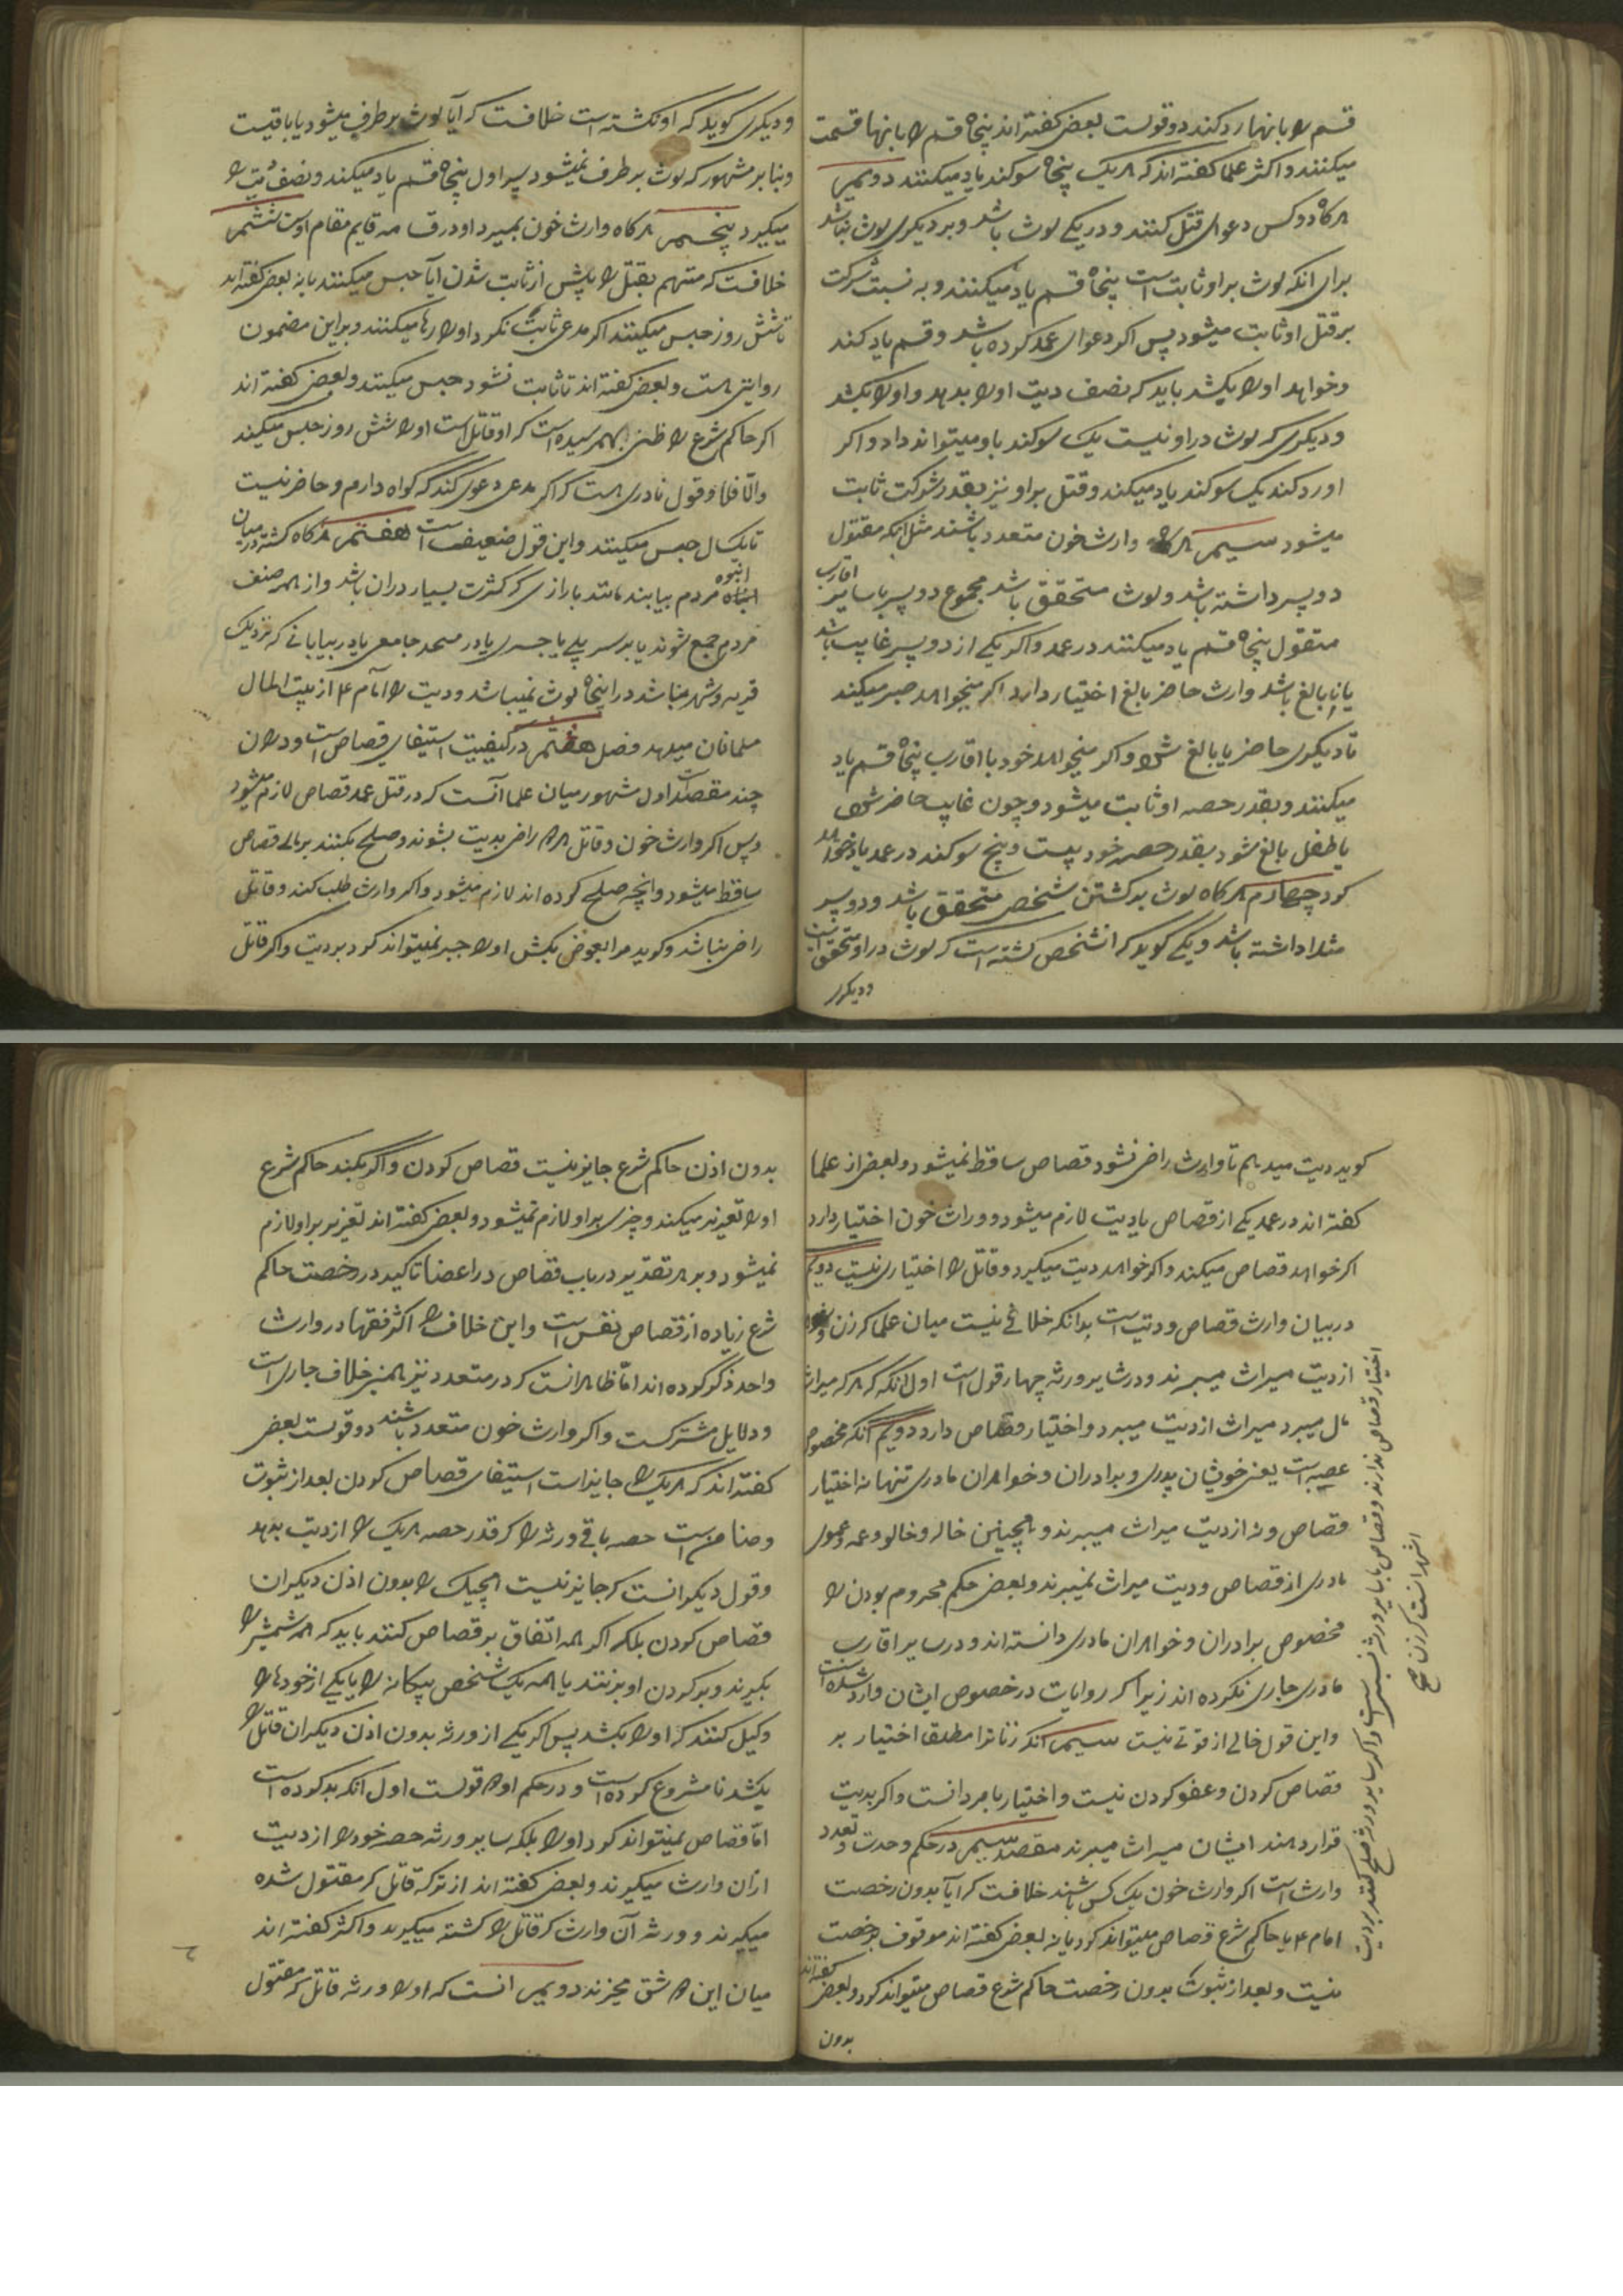 قسم را بانها رد کند دو قولست بعضی گفته اند پنجاه قسم را بانها قسمت
میکنند و اکثر علما گفته اند که هر یک پنجاه سوکند یاد میکنند دویم
هرکاه دو کس دعوای قتل کنند و در یکی لوث باشد و بر دیکری لوث نباشد
برای انکه لوث بر او ثابت است پنجاه قسم یاد میکنند و به نسبت شرکت
بر قتل او ثابت میشود پس اکر دعوای عمد کرده باشد و قسم یاد کند
و خواهد او را بکشد باید که نصف دیت او را بدهد و او را بکشد
و دیکری که لوث در او نیست یک سوکند باو میتواند داد و اکر
او رد کند یک سوکند یاد میکند و قتل بر او نیز بقدر شرکت ثابت
میشود سیم هرکاه وارث خون متعدد باشند مثل انکه مقتول
دو پسر داشته باشد و لوث متحقق باشد مجموع دو پسر با سایر اقارب
مقتول پنجاه قسم یاد میکنند در عمد و اکر یکی از دو پسر غایب باشد
یا نابالغ باشد وارث حاضر بالغ اختیار دارد اکر میخواهد صبر میکند
تا دیکری حاضر یا بالغ شود و اکر میخواهد خود با اقارب پنجاه قسم یاد
میکنند و بقدر حصه او ثابت میشود و چون غایب حاضر شود
یا طفل بالغ شود بقدر حصه خود بیست و پنج سوکند در عمد یاد خواهد
کرد چهارم هرکاه لوث بر کشتن شخصی متحقق باشد و دو پسر
مثلا داشته باشد و یکی گوید که انشخص کشته است که لوث در او متحقق است
و دیکری
و دیکری کوید که او نکشته است خلافست که آیا لوث بر طرف میشود یا باقیست
و بنا بر مشهور که لوث بر طرف نمیشود پسر اول پنجاه قسم یاد میکند و نصف دیت را
میکیرد پنجم هرکاه وارث خون بمیرد اولاد قایم مقام اوست ششم
خلافست که متهم بقتل را پیش از ثابت شدن آیا حبس میکنند یا نه بعضی گفته اند
تا شش روز حبس میکنند اکر مدعی ثابت نکرد او را رها میکنند و بر این مضمون
روایتی هست و بعضی گفته اند تا ثابت نشود حبس میکنند و بعضی گفته اند
اکر حاکم شرع را ظنی بهم رسیده است که او قاتل است او را شش روز حبس میکند
والا فلا و قول نادری هست که اکر مدعی دعوی کند که گواه دارم و حاضر نیست
تا یک سال حبس میکنند و این قول ضعیف است هفتم هرکاه کشته در میان
انبوه مردم بیابند مانند بازاری که کثرت بسیار در ان باشد و از هر صنف
مردم جمع شوند یا بر سر پلی یا جسری یا در مسجد جامعی یا در بیابانی که نزدیک
قریه و شهر نباشد در اینجا لوث نمیباشد و دیت را امام ع از بیت المال
مسلمانان میدهد فصل هفتم در کیفیت استیفای قصاص است و در ان
چند مقصدست اول مشهور میان علما آنست که در قتل عمد قصاص لازم میشود
و پس اکر وارث خون و قاتل هر دو راضی بدیت بشوند و صلح بکنند بر مالی قصاص
ساقط میشود و انچه صلح کرده اند لازم میشود و اکر وارث طلب کند و قاتل
راضی نباشد و گوید مرا بعوض بکش او را جبر نمیتواند کرد بر دیت و اکر قاتل
کوید دیت میدهم تا وارث راضی نشود قصاص ساقط نمیشود و بعضی از علما
گفته اند در عمد یکی از قصاص یا دیت لازم میشود و وارث خون اختیار دارد
اکر خواهد قصاص میکند و اکر خواهد دیت میکیرد و قاتل را اختیاری نیست دویم
در بیان وارث قصاص و دیت است بدانکه خلافی نیست میان علما که زن و شوهر
از دیت میراث میبرند و در سایر ورثه چهار قول است اول انکه که هرکه میراث
مال میبرد میراث از دیت میبرد و اختیار قصاص دارد دویم آنکه مخصوص
عصبه است یعنی خویشان پدری و برادران و خواهران مادری تنها نه اختیار
قصاص و نه از دیت میراث میبرند و همچنین خاله و خالو و عمه و عموی
مادری از قصاص و دیت میراث نمیبرند و بعضی حکم محروم بودن را
مخصوص برادران و خواهران مادری دانسته اند و در سایر اقارب
مادری جاری نکرده اند زیرا که روایات در خصوص ایشان وارد شده است
و این قول خالی از قوتی نیست سیم آنکه زنان را مطلقا اختیار بر
قصاص کردن و عفو کردن نیست و اختیار با مردانست و اکر بدیت
قرار دهند ایشان میراث میبرند مقصد سیم در حکم وحدت و تعدد
وارث است اکر وارث خون یک کس باشد خلافست که آیا بدون رخصت
امام ع یا حاکم شرع قصاص میتواند کرد یا نه بعضی گفته اند موقوف برخصت
نیست و بعد از ثبوت بدون رخصت حاکم شرع قصاص میتواند کرد و بعضی گفته اند
بدون
اختیار قصاص ندارند و قصاص با سایر ورثه است و اکر سایر ورثه صلح کنند بر دیت
اشهر انست که زن
بدون اذن حاکم شرع جایز نیست قصاص کردن و اگر بکند حاکم شرع
او را تعزیر میکند و چیزی بر او لازم نمیشود و بعضی گفته اند تعزیر بر او لازم
نمیشود و بر هر تقدیر در باب قصاص در اعضا تاکید در رخصت حاکم
شرع زیاده از قصاص نفس است و این خلاف را اکثر فقها در وارث
واحد ذکر کرده اند اما ظاهر انست که در متعدد نیز همین خلاف جاری است
و دلایل مشترکست و اکر وارث خون متعدد باشند دو قولست بعضی
گفته اند که هر یک را جایز است استیفای قصاص کردن بعد از ثبوت
و ضامن است حصه باقی ورثه را که قدر حصه هر یک را از دیت بدهد
و قول دیکر انست که جایز نیست هیچیک را بدون اذن دیکران
قصاص کردن بلکه اکر همه اتفاق بر قصاص کنند باید که همه شمشیر را
بکیرند و بر کردن او بزنند یا همه یک شخص بیکانه را یا یکی از خودها را
وکیل کنند که او را بکشد پس اکر یکی از ورثه بدون اذن دیکران قاتل را
بکشد نامشروع کرده است و در حکم او دو قولست اول انکه بد کرده است
اما قصاص نمیتواند کرد او را بلکه سایر ورثه حصه خود را از دیت
از ان وارث میکیرند و بعضی گفته اند از ترکه قاتل که مقتول شده
میکیرند و ورثه آن وارث که قاتل را کشته میکیرند و اکثر گفته اند
میان این دو شق مخیرند دویم انست که او را ورثه قاتل که مقتول